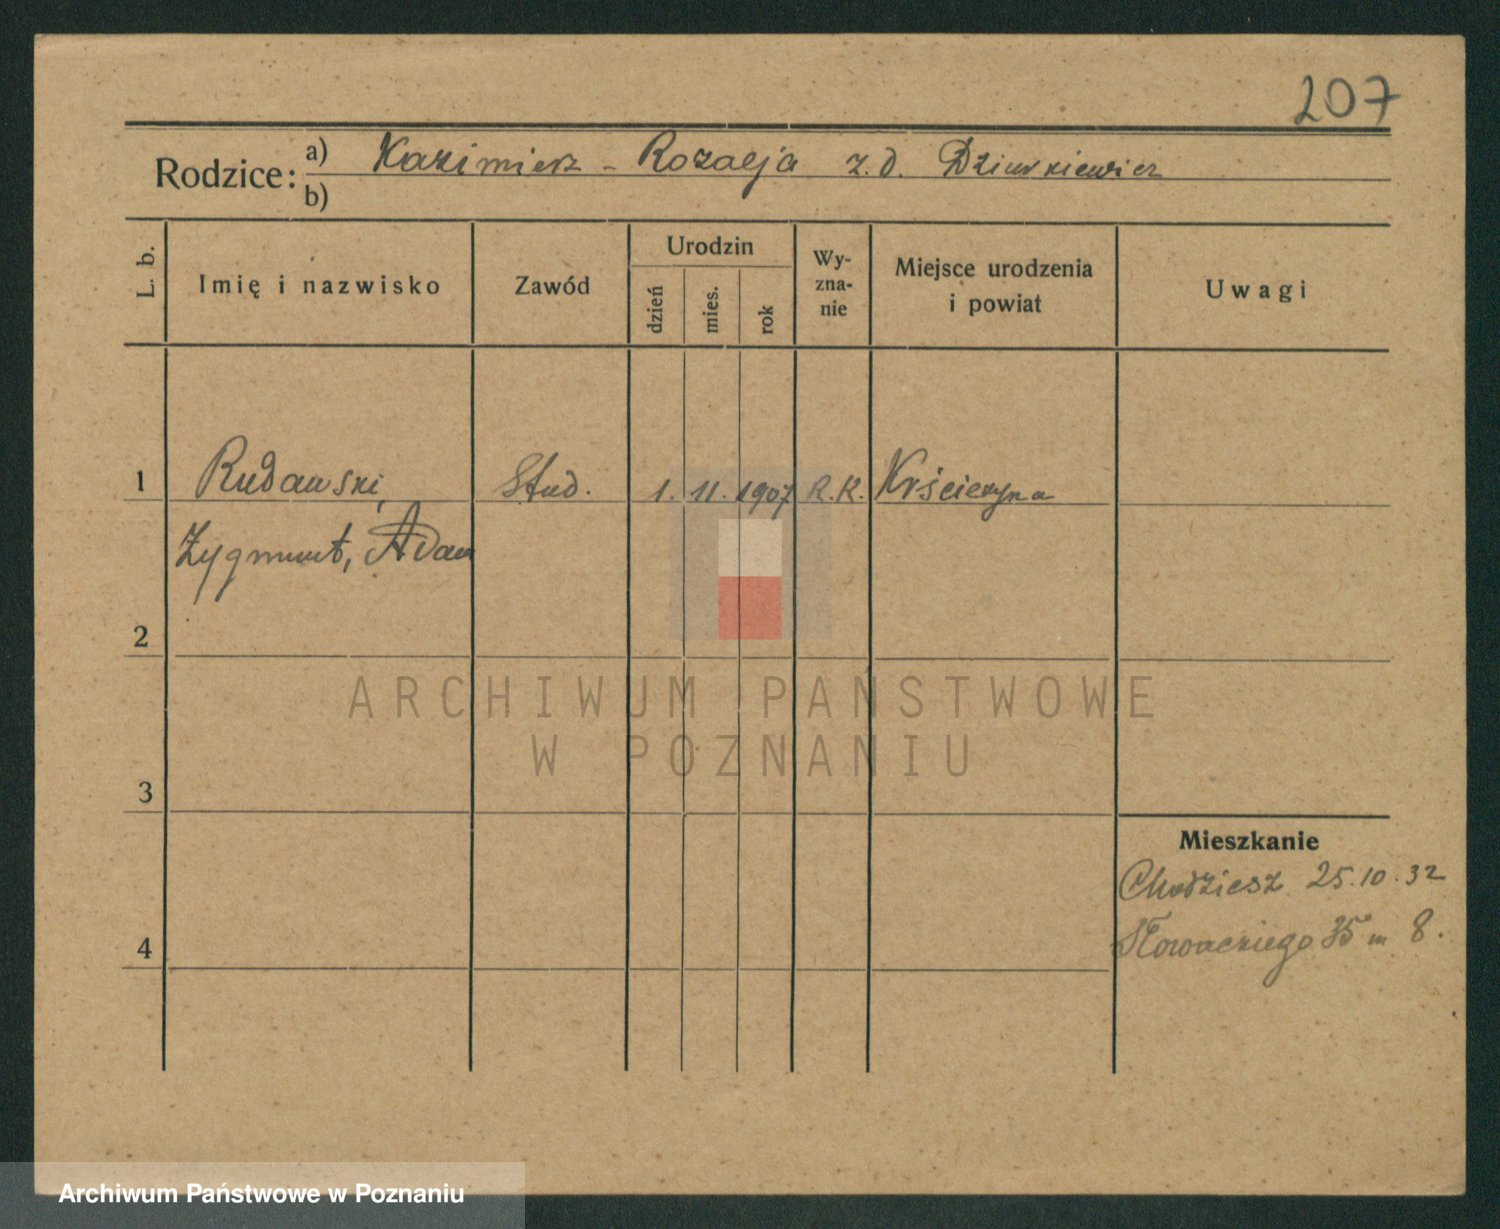 207
Rodzice: a) Kazimierz - Rozalja z.d.
b)
L. b. Imię i nazwisko Zawód Urodzin dzień mies. rok Wy-zna-nie Miejsce urodzenia i powiat Uwagi
1 Rudawski, Stud. 1. 11. 1907 R.K.
Zygmunt, Adam
2
ARCHIWUM PAŃSTWOWE
W POZNANIU
3
Mieszkanie
Chodziesz 25.10.32
4 Słowackiego 35 m 8.
Archiwum Państwowe w Poznaniu